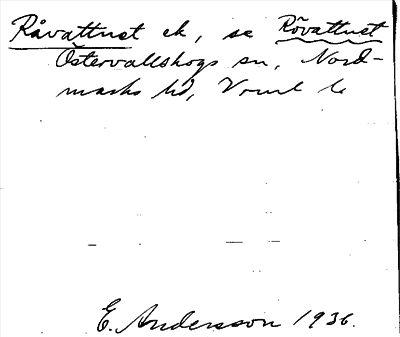 Råvattnet ek, se Rövattnet
Östervallskogs sn, Nord-
marks hd, Vrml l.
E. Andersson 1936.